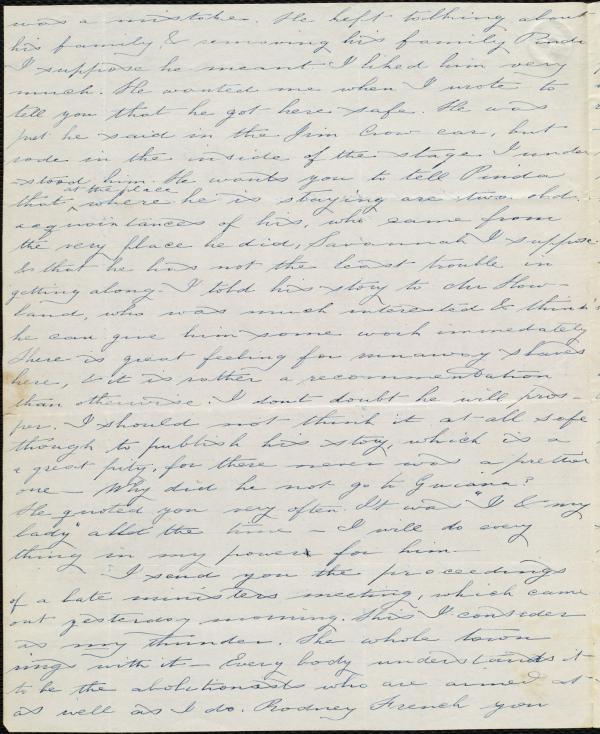 was a mistake. He kept talking about
his family & removing his family Pinda
I suppose he meant. I liked him very
much. He wanted me when I wrote to
tell you that he got here safe. He was
put he said in the Jim Crow car, but
rode in the inside of the stage I under
stood him. He wants you to tell Pinda
that at the place where he is staying are two old
acquaintances of his, who came from
the very place he did, Savannah I suppose
& that he has not the least trouble in
getting along. I told his story to Mr How-
land, who was much interested & thinks
he can give him some work immediately
There is great feeling for runaway slaves
here, & it is rather a recommendation
than otherwise. I dont doubt he will pros-
per. I should not think it at all safe
though to publish his story, which is a
a great pity, for there never was a prettier
one – Why did he not go to Guiana?
He quoted you very often. It was "I & my
lady" all the time – I will do every
thing in my power for him –
I send you the proceedings
of a late ministers meeting, which came
out yesterday morning. This I consider
as my thunder. The whole town
rings with it – Every body understands it
to be the abolitionists who are aimed at
as well as I do. Rodney French you